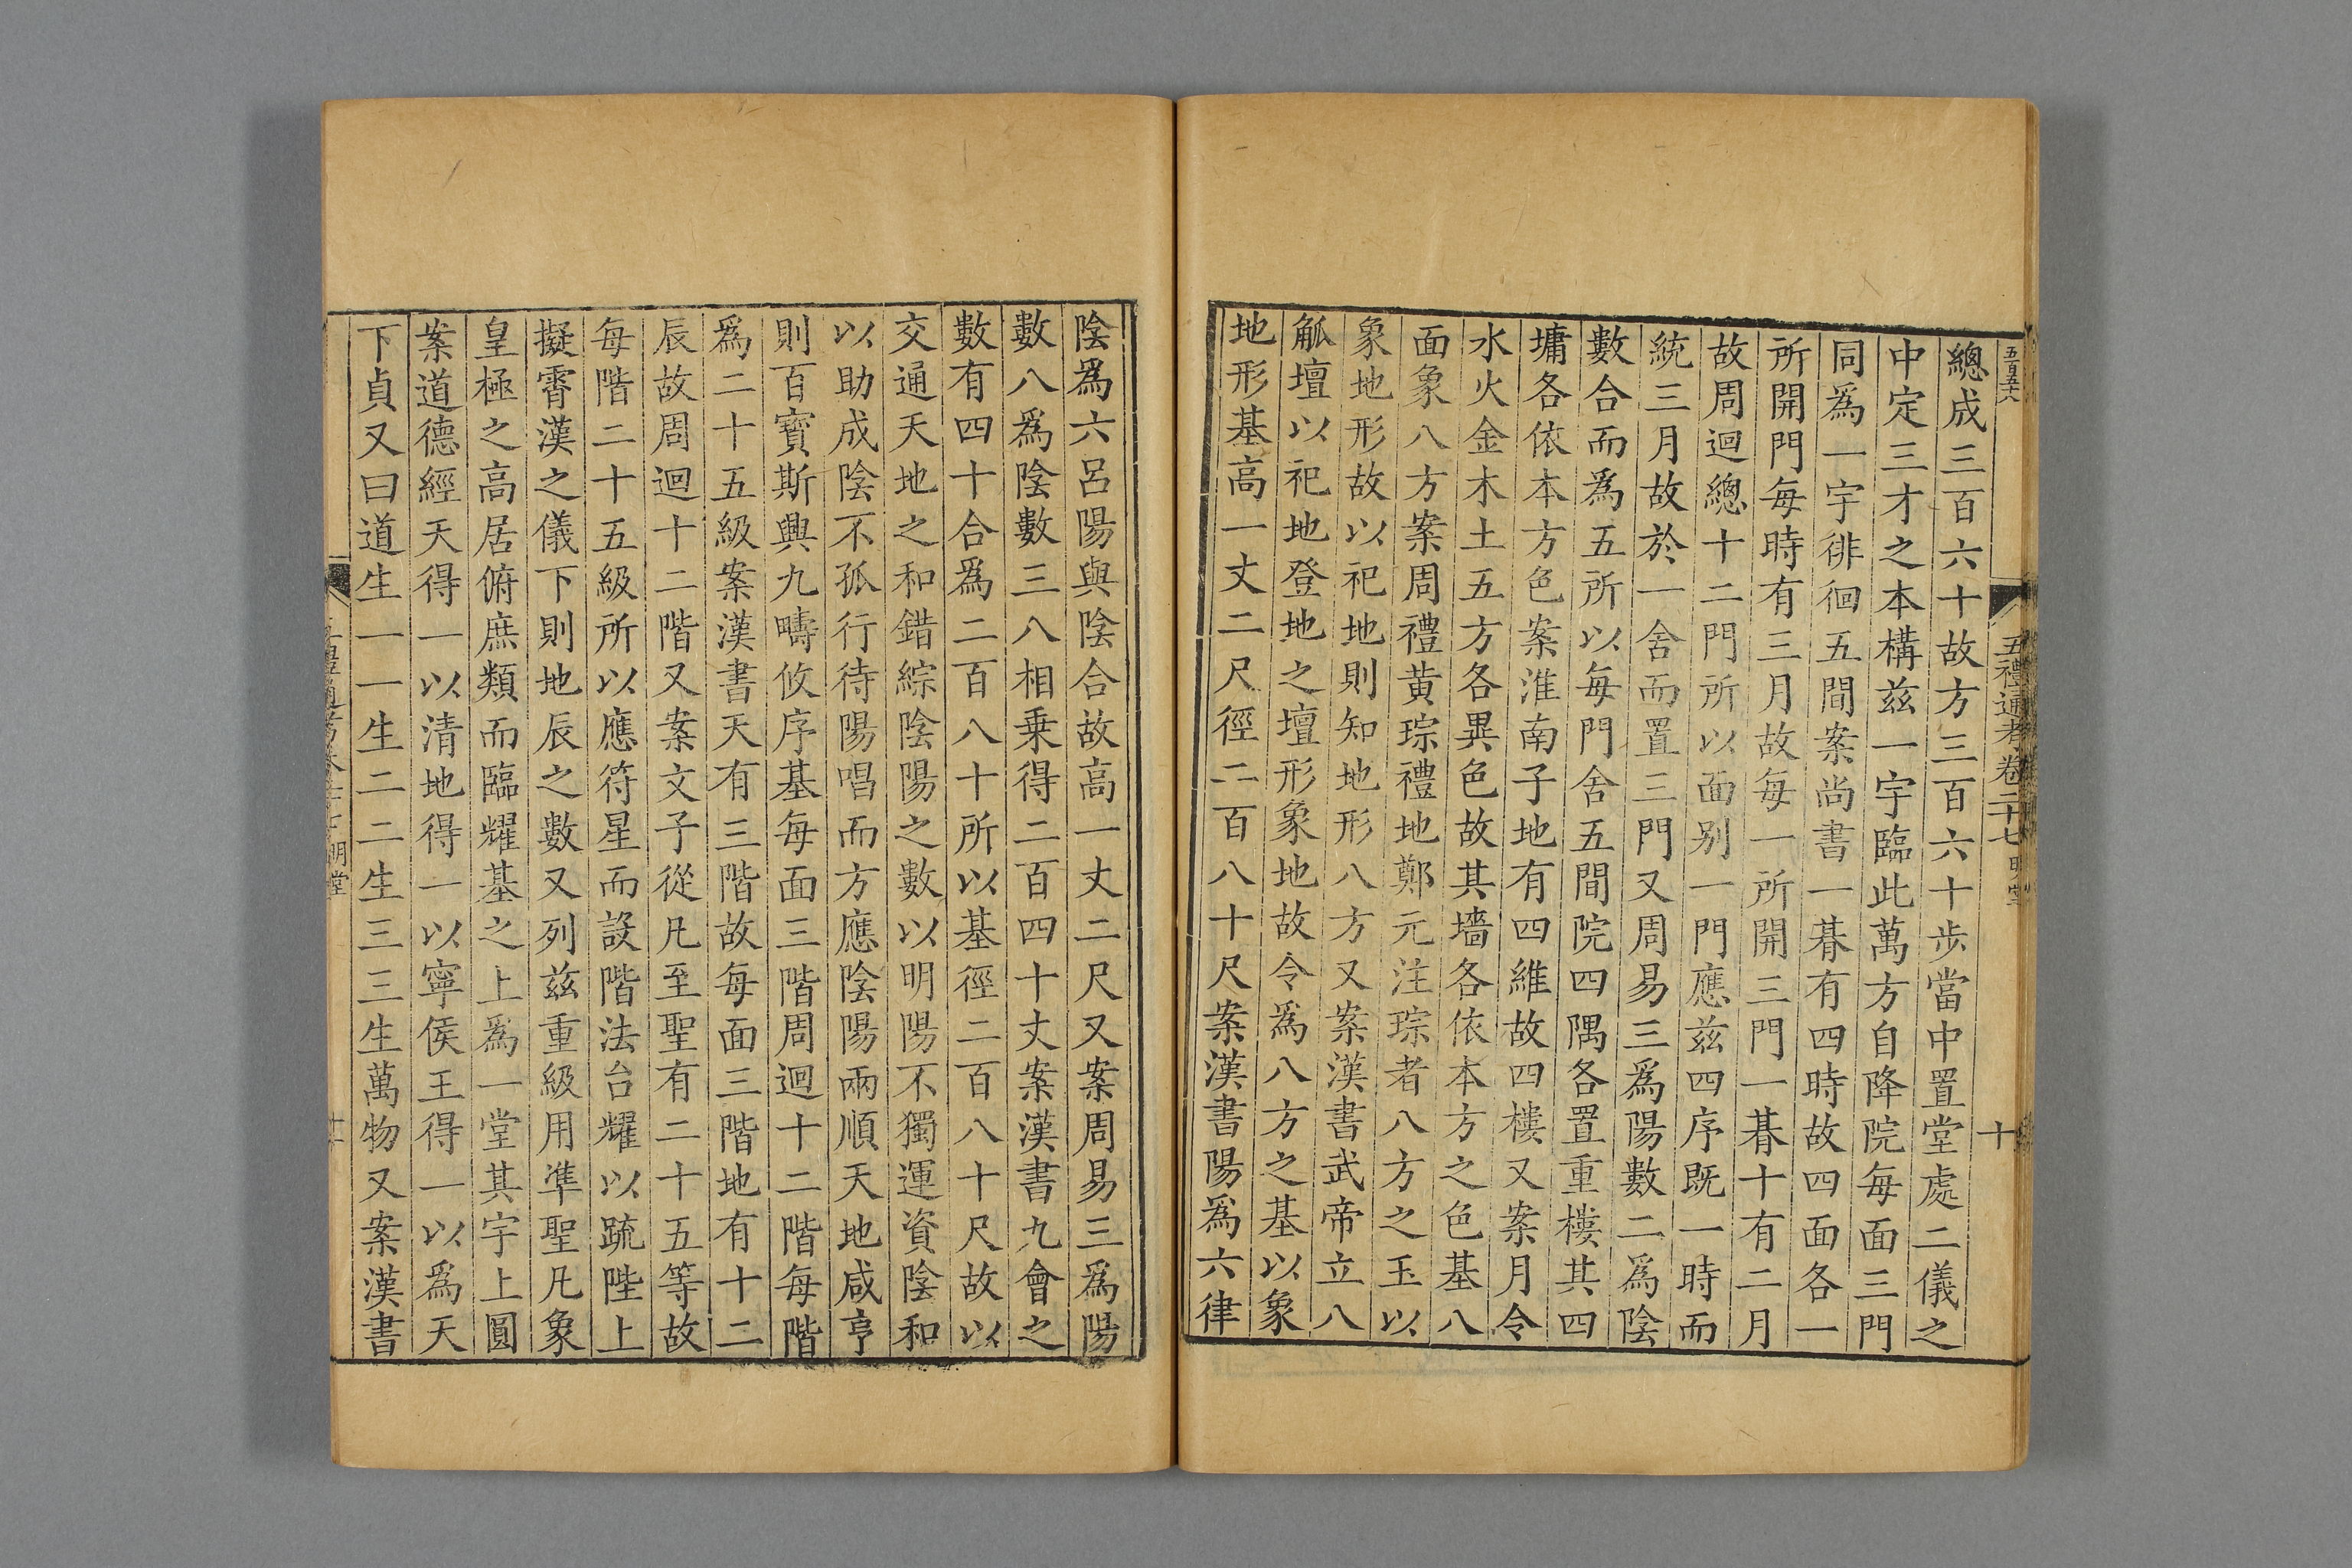 五禮通考卷二十七
十
總成三百六十故方三百六十步當中置堂處二儀之
中定三才之本構兹一宇臨此萬方自降院每面三門
同爲一宇徘徊五間案尚書一朞有四時故四面各一
所開門每時有三月故每一所開三門一朞十有二月
故周迴總十二門所以面别一門應兹四序既一時而
統三月故於一舍而置三門又周易三爲陽數二爲陰
數合而爲五所以每門舍五間院四隅各置重樓其四
墉各依本方色案淮南子地有四維故四樓又案月令
水火金木土五方各異色故其墻各依本方之色基八
面象八方案周禮黄琮禮地鄭元注琮者八方之玉以
象地形故以祀地則知地形八方又案漢書武帝立八
觚壇以祀地登地之壇形象地故令爲八方之基以象
地形基高一丈二尺徑二百八十尺案漢書陽爲六律
陰爲六呂陽與陰合故高一丈二尺又案周易三爲陽
數八爲陰數三八相乗得二百四十丈案漢書九會之
數有四十合爲二百八十所以基徑二百八十尺故以
交通天地之和錯綜陰陽之數以明陽不獨運資陰和
以助成陰不孤行待陽唱而方應陰陽兩順天地咸亨
則百寳斯興九疇攸序基每面三階周迴十二階每階
爲二十五級案漢書天有三階故每面三階地有十二
辰故周迴十二階又案文子從凡至聖有二十五等故
每階二十五級所以應符星而設階法台耀以疏陛上
擬霄漢之儀下則地辰之數又列兹重級用凖聖凡象
皇極之高居俯庶類而臨耀基之上爲一堂其宇上圓
案道德經天得一以清地得一以寧侯王得一以爲天
下貞又曰道生一一生二二生三三生萬物又案漢書
明堂